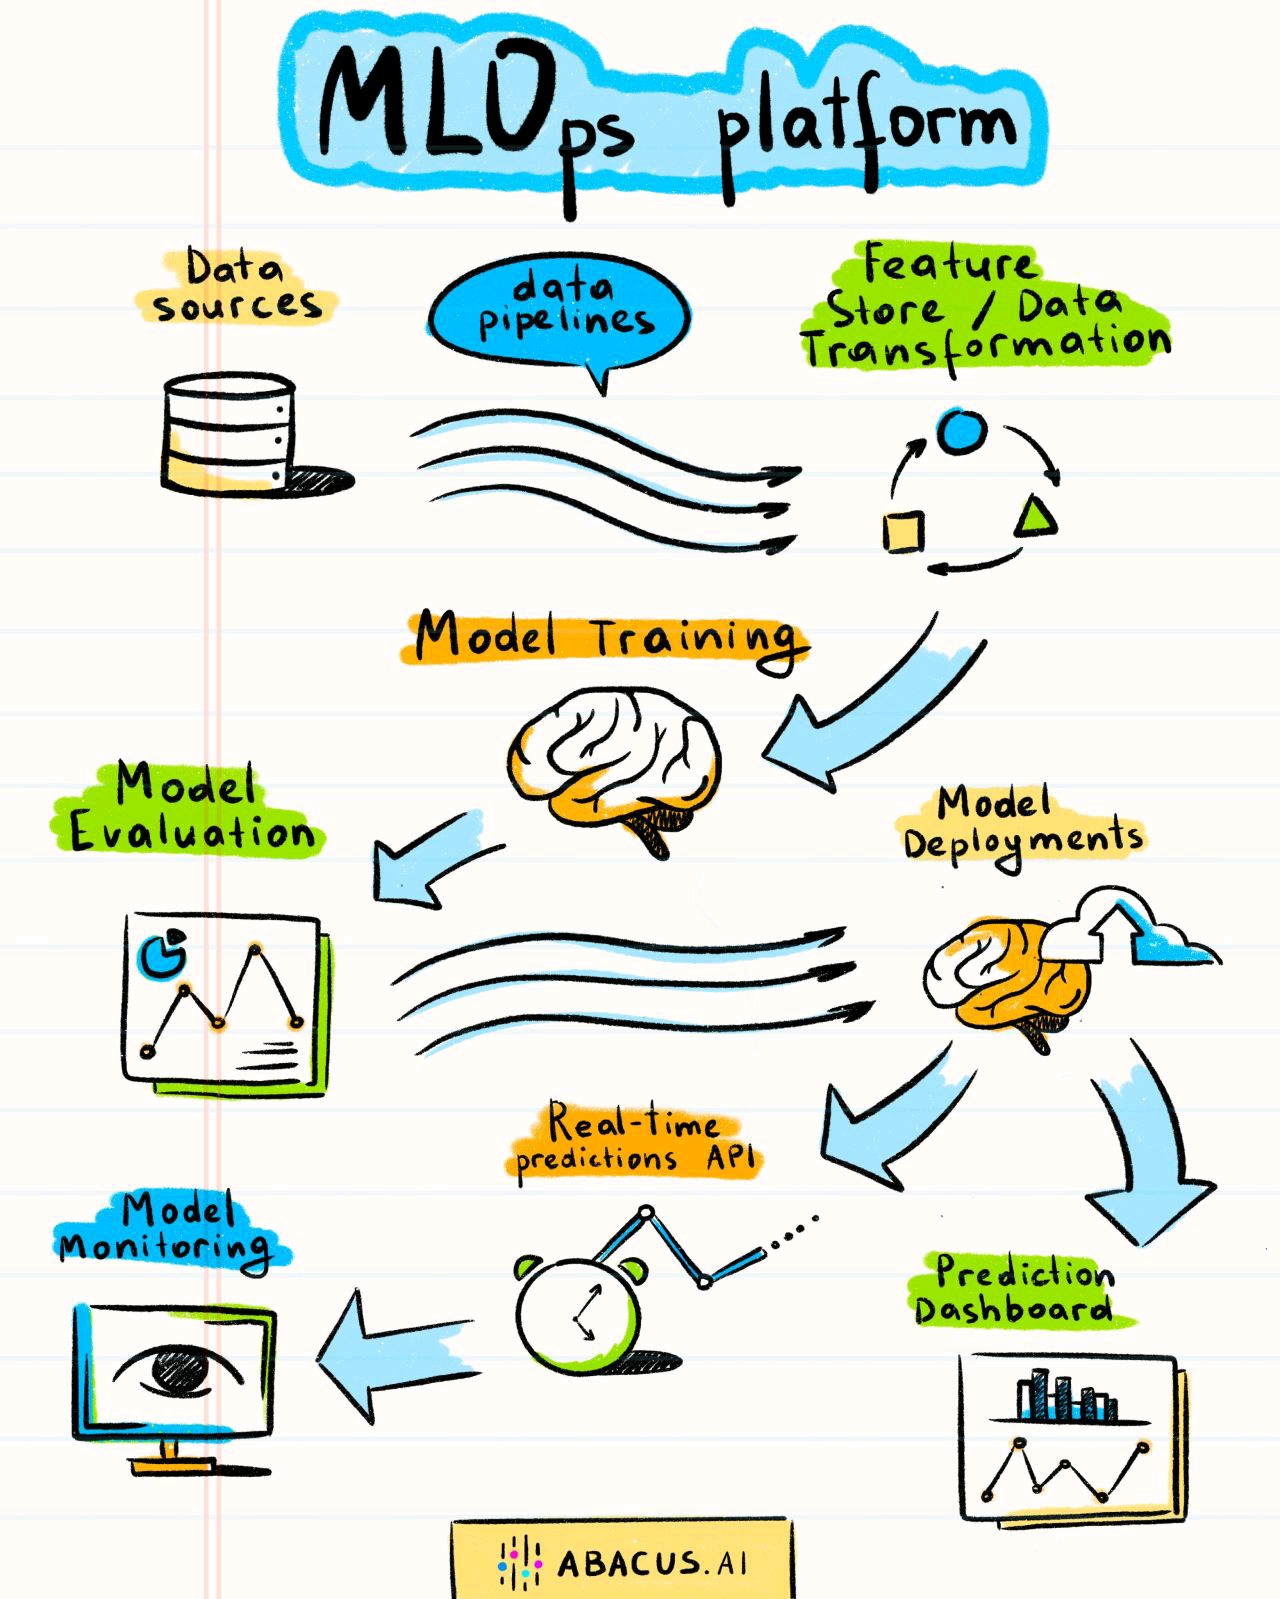 MLOps platform
Data
sources
data
pipelines
Feature
Store / Data
Transformation
Model Training
Model
Evaluation
Model
Deployments
Real-time
predictions API
Model
Monitoring
Prediction
Dashboard
ABACUS.AI